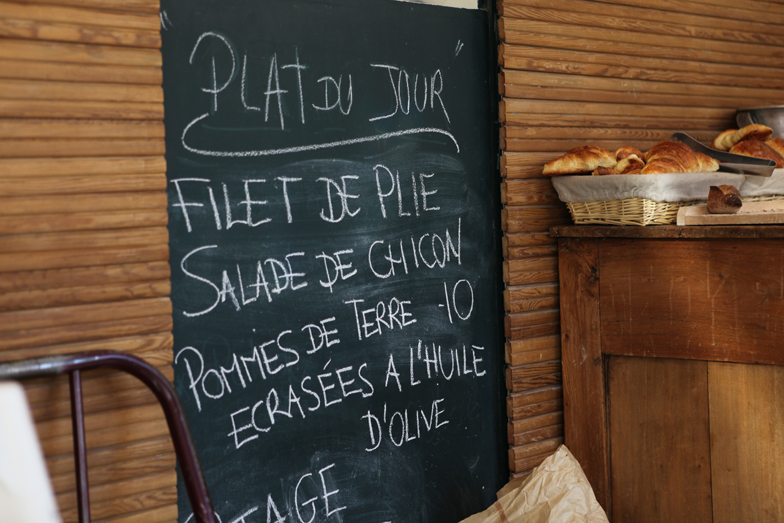 PLAT DU JOUR "
FILET DE PLIE
SALADE DE CHICON
POMMES DE TERRE -10
ECRASÉES A L'HUILE
D'OLIVE